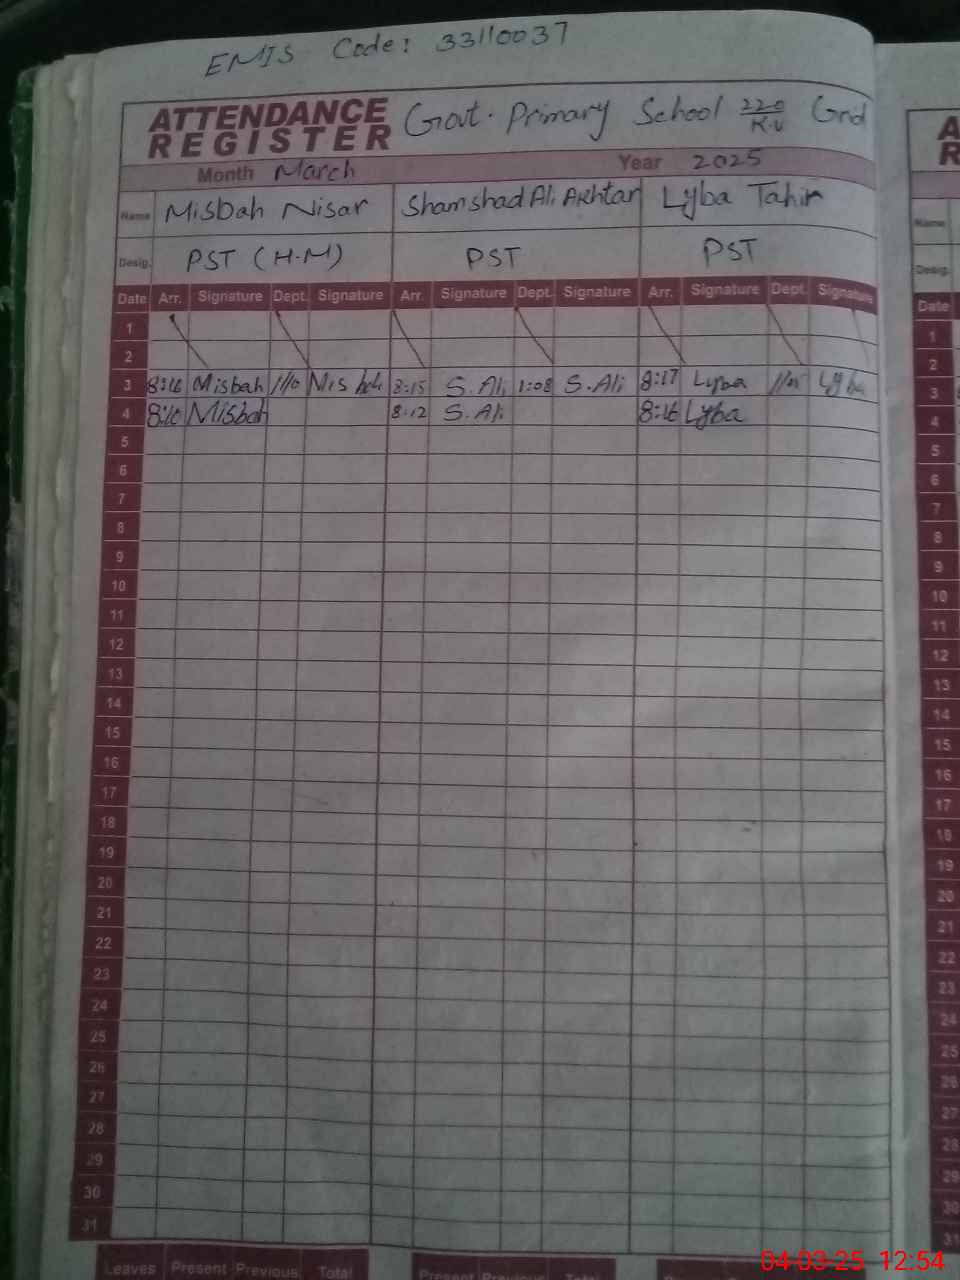 EMIS Code: 33110037
ATTENDANCE REGISTER Govt. Primary School 220 K.V Grid
Month March Year 2025
Name Misbah Nisar Shamshad Ali Akhtar Lyba Tahir
Desig. PST (H.M) PST PST
Date Arr. Signature Dept. Signature Arr. Signature Dept. Signature Arr. Signature Dept. Signature
1
2
3 8:16 Misbah Misbah 8:15 S.Ali 1:08 S.Ali 8:17 Lyba Lyba
4 8:10 Misbah 8:12 S.Ali 8:16 Lyba
5
6
7
8
9
10
11
12
13
14
15
16
17
18
19
20
21
22
23
24
25
26
27
28
29
30
31
Leaves Present Previous Total Present Previous Total
A
R
Name
Desig.
Date
1
2
3
4
5
6
7
8
9
10
11
12
13
14
15
16
17
18
19
20
21
22
23
24
25
26
27
28
29
30
31
04-03-25 12:54